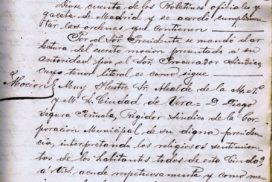 Diose cuenta de los Boletines oficiales y
gaceta de Madrid y se acordó cumplimen-
tar las ordenes que contienen
Por el Sor. Presidente se mandó dar
lectura del escrito mocion presentado a su
autoridad por el Sor. Procurador Síndico,
cuyo tenor literal es como sigue
Mocion Muy Ilustre Sr. Alcalde de la M. N.
y M. L. Ciudad de Vera = D. Diego
Segura Regidor Síndico de la Cor-
poracion Municipal de su digna presiden-
cia, interpretando los religiosos sentimien-
tos de los habitantes todos de esta Ciudad
a V. S. acude respetuosamente y como me-